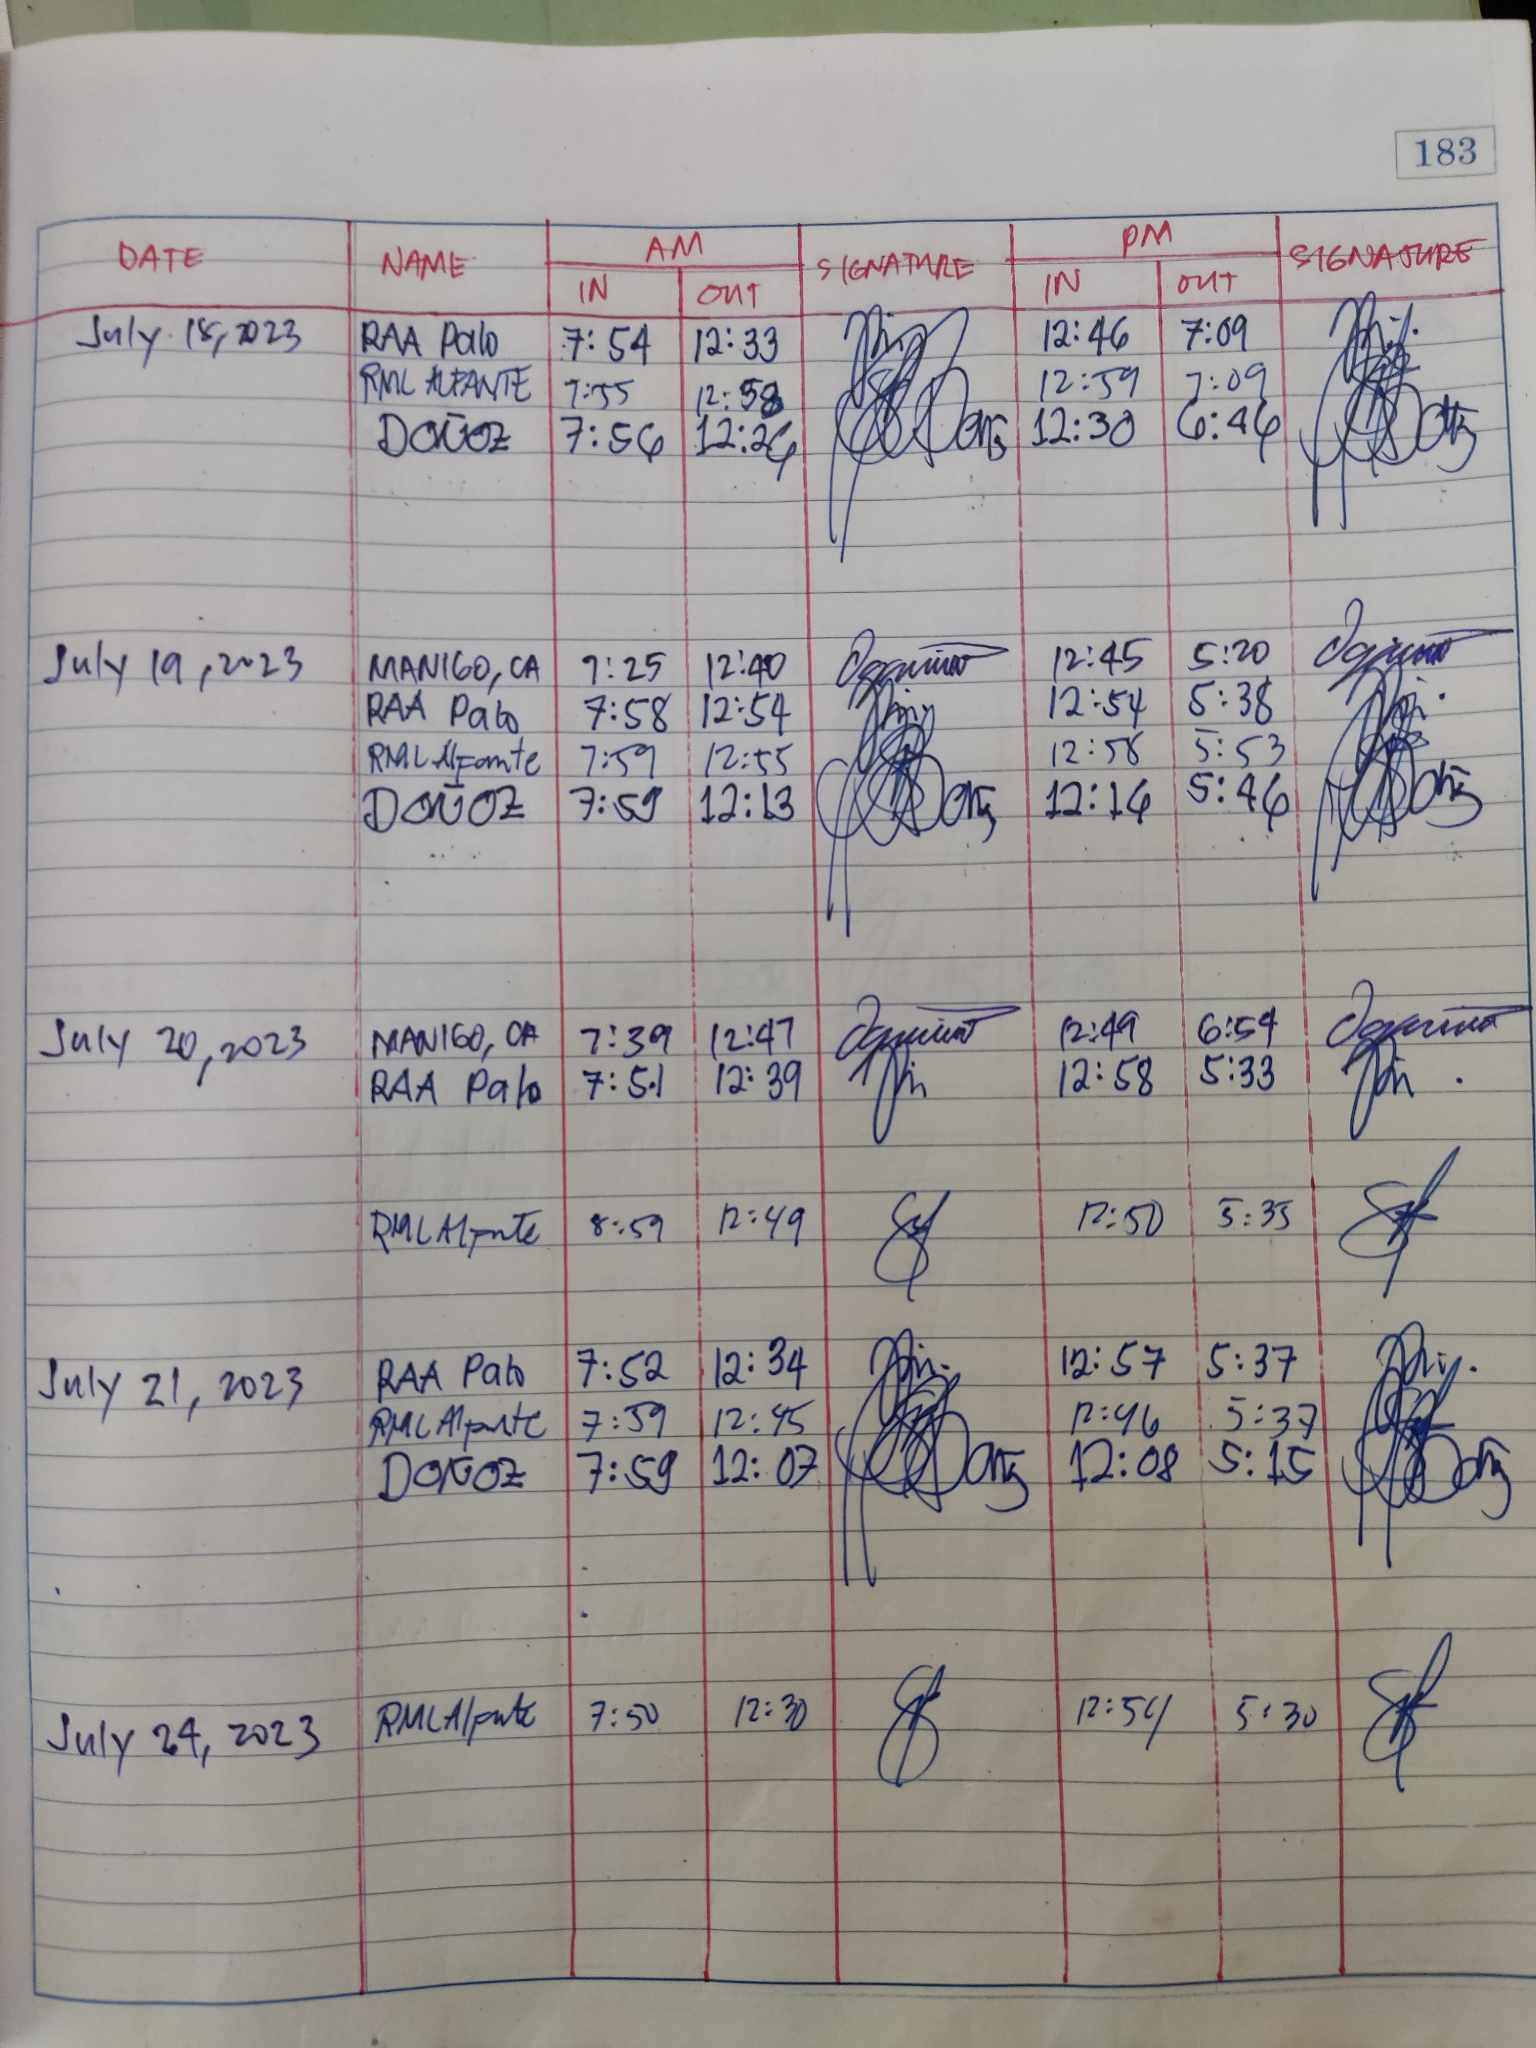 183
DATE NAME AM SIGNATURE PM SIGNATURE
IN OUT IN OUT
July 18, 2023 RAA Palo 7:54 12:33 12:46 7:09
RML ALFANTE 7:55 12:58 12:59 7:09
DOÑOZ 7:56 12:26 12:30 6:46
July 19, 2023 MANIGO, CA 7:25 12:40 12:45 5:20
RAA Palo 7:58 12:54 12:54 5:38
RML Alfante 7:59 12:55 12:58 5:53
DOÑOZ 7:59 12:13 12:16 5:46
July 20, 2023 MANIGO, CA 7:39 12:47 12:49 6:54
RAA Palo 7:51 12:39 12:58 5:33
RML Alfante 8:59 12:49 12:50 5:35
July 21, 2023 RAA Palo 7:52 12:34 12:57 5:37
RML Alfante 7:59 12:45 12:46 5:37
DOÑOZ 7:59 12:07 12:08 5:15
July 24, 2023 RML Alfante 7:50 12:30 12:54 5:30